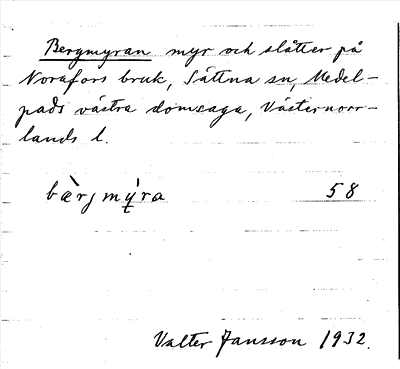 Bergmyran myr och slåtter på
Norafors bruk, Sättna sn, Medel-
pads västra domsaga, Västernorr-
lands l.
bæ̀rjmý̨ra 58
Valter Jansson 1932.